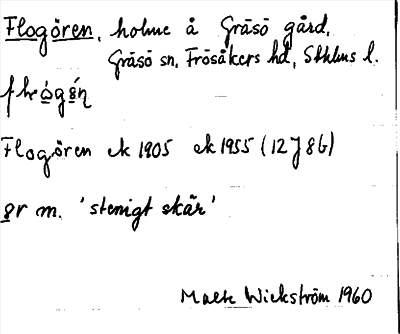 Flogören, holme å Gräsö gård,
Gräsö sn, Frösåkers hd, Sthlms l.
Flogören ek 1905 ek 1955 (12J8b)
gr m. 'stenigt skär'
Malte Wickström 1960